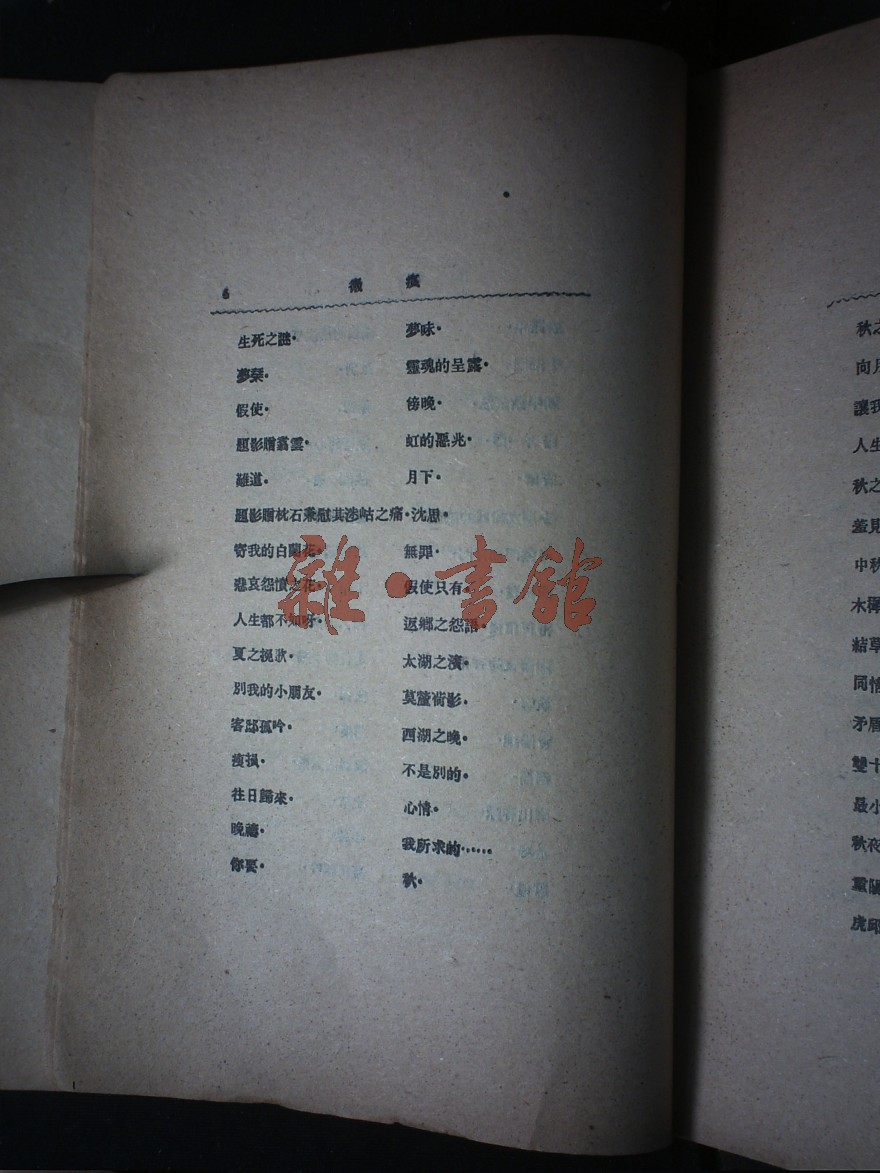 6 微 痕
生死之謎· 夢味·
夢槳· 靈魂的呈露·
假使· 傍晚·
題影贈翥雲· 虹的惡兆·
難道· 月下·
題影贈枕石兼慰其涉岵之痛· 沈恩·
寄我的白蘭花· 無罪·
悲哀怨憤之花· 假使只有·
人生都不如呀· 返鄉之怨語·
夏之輓歌· 太湖之濱·
別我的小朋友· 莫釐嵛影·
客邸孤吟· 西湖之晚·
痕損· 不是別的·
往日歸來· 心情·
晚禱· 我所求的……
你要· 秋·
雜·書館
秋之
向月
讓我
人生
秋之
羞見
中秋
水
結草
同情
矛盾
雙十
最小
秋夜
重陽
虎邱